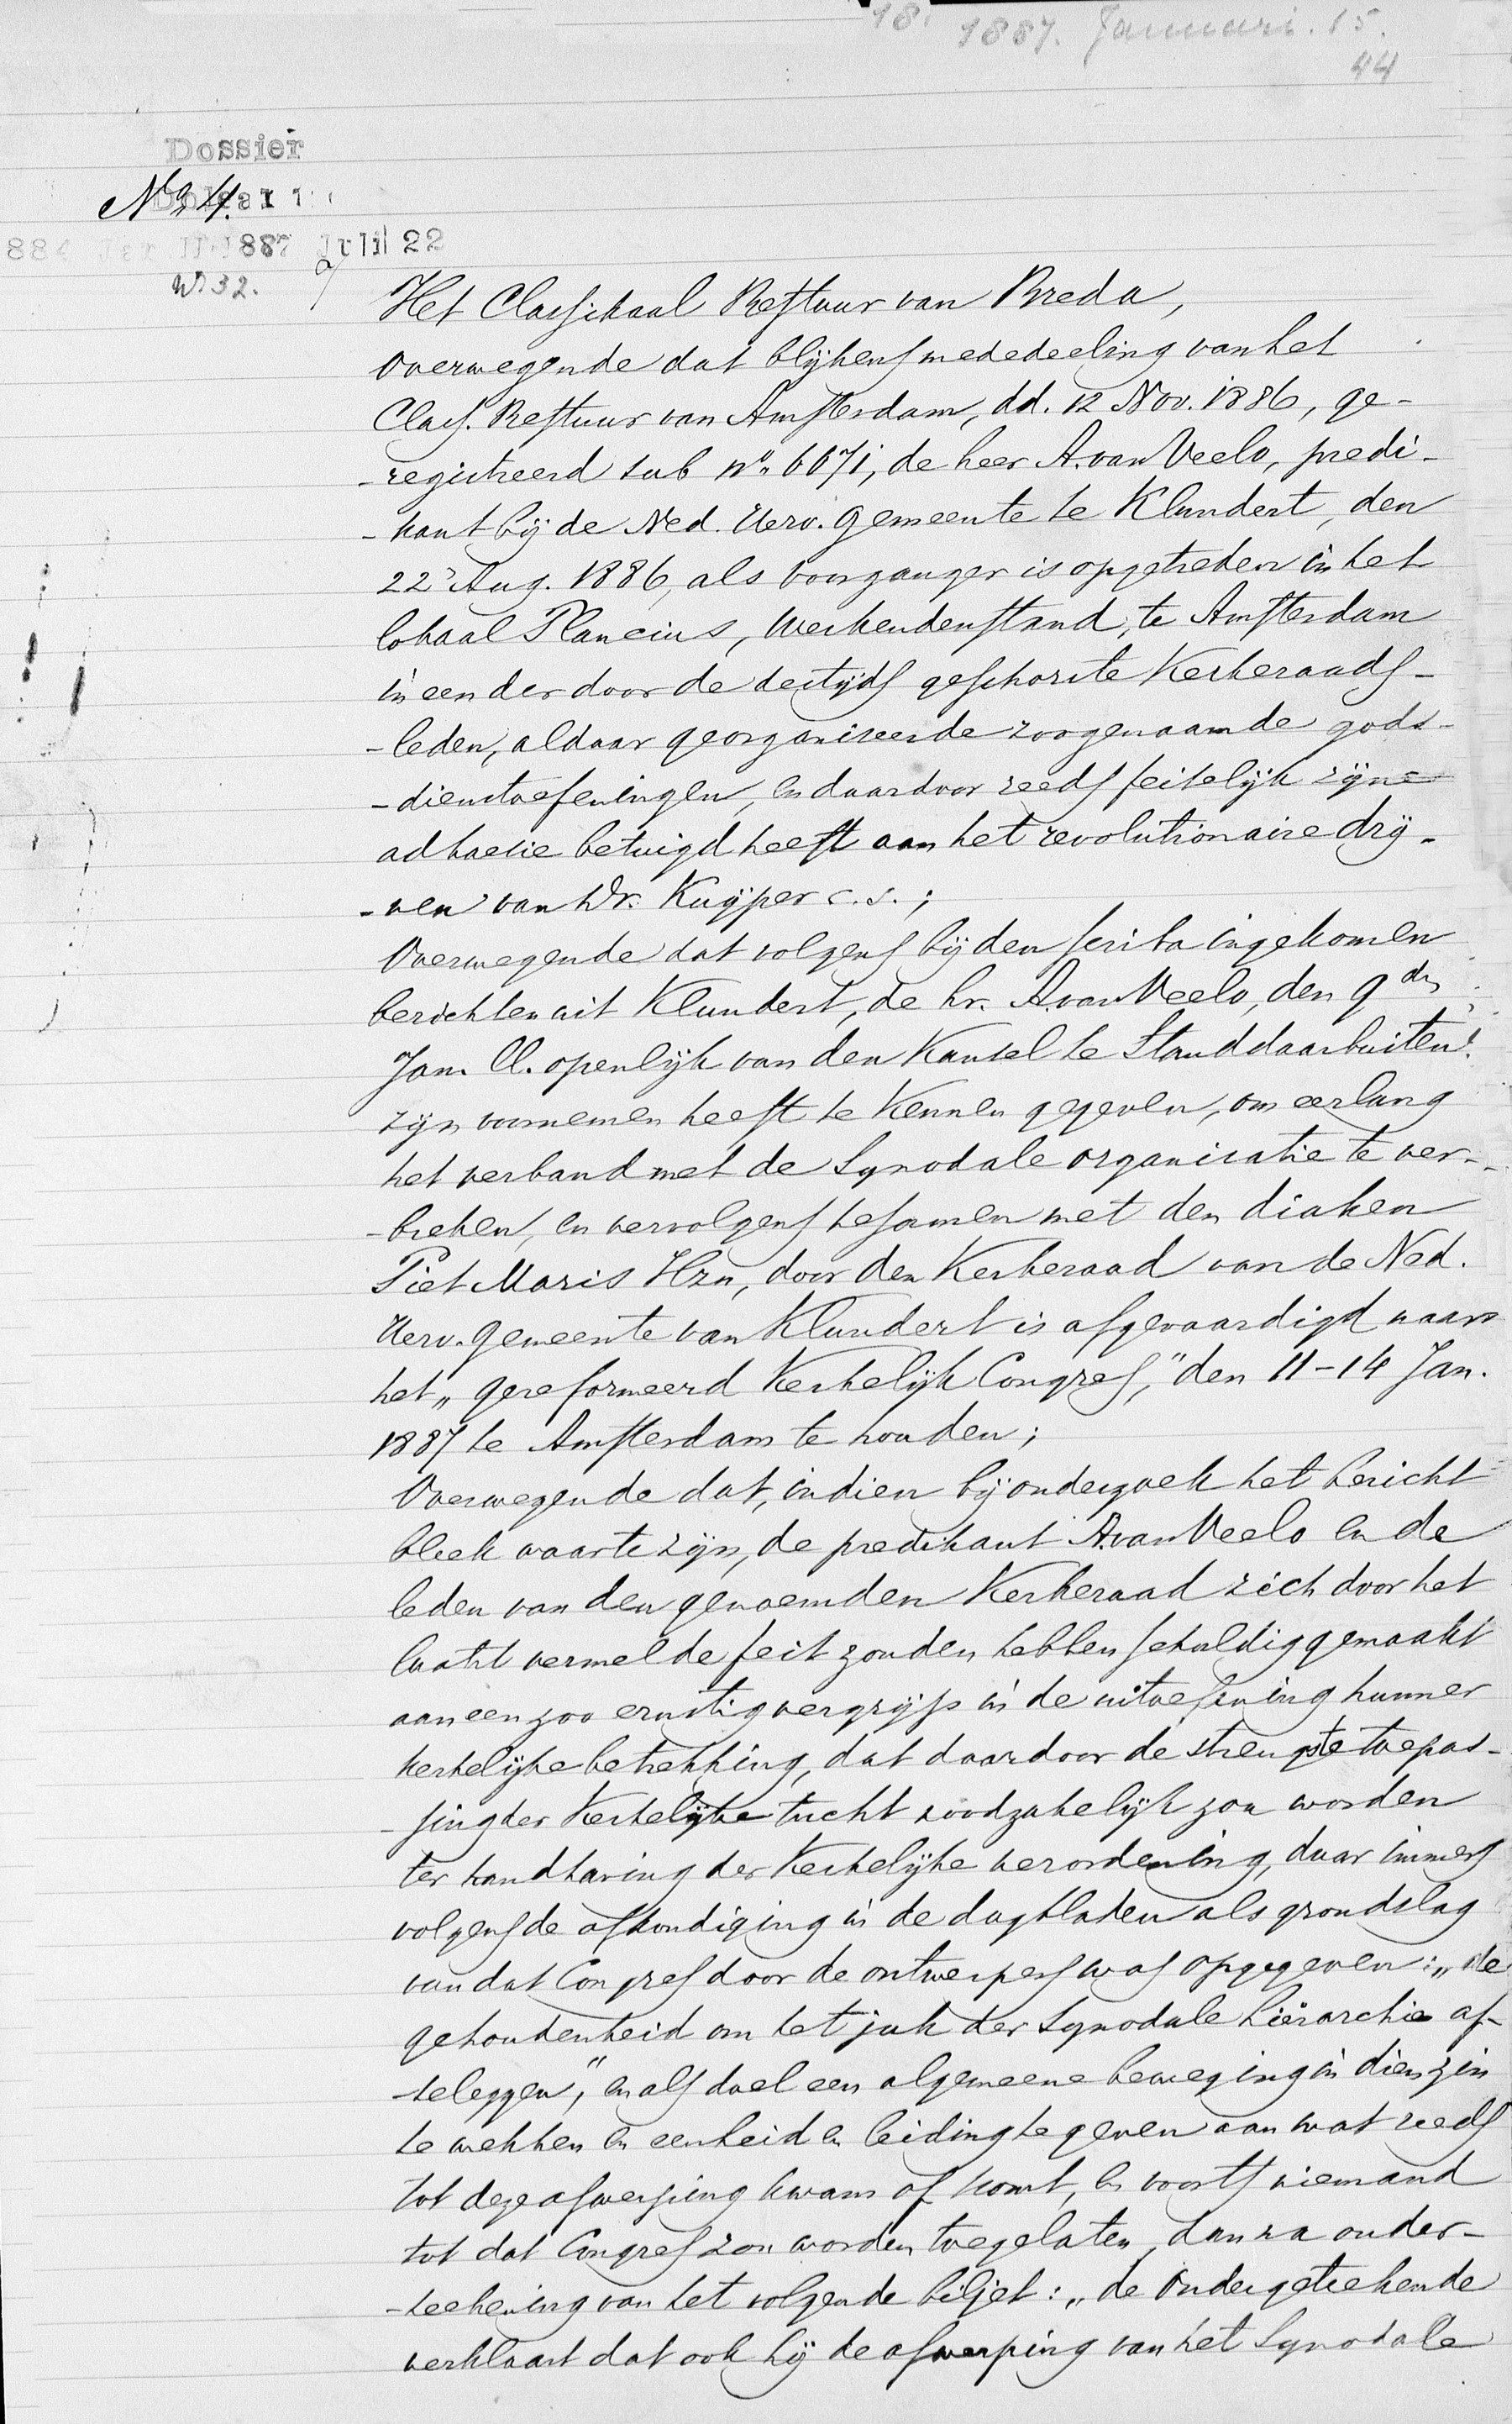 18. 1887. Januari. 15.
44
Dossier
No 4.
1887 Juli 22
No 32.
Het Classikaal Bestuur van Breda,
overwegende dat blijkens mededeeling van het
Class. Bestuur van Amsterdam, dd. 12 Nov. 1886, ge-
-registreerd sub no. 6071, de heer A. van Veelo, predi-
-kant bij de Ned. Herv. Gemeente te Klundert, den
22 Aug. 1886, als voorganger is opgetreden in het
lokaal Plancius, Werkendenstand, te Amsterdam
in een der door de destijds geschorste Kerkeraads-
-leden, aldaar georganiseerde zoogenaamde gods-
-dienstoefeningen, en daardoor reeds feitelijk zijne
adhaesie betuigd heeft aan het revolutionaire drij-
-ven van Dr. Kuijper c.s.;
Overwegende dat volgens bij den scriba ingekomen
berichten uit Klundert, de hr. A. van Veelo, den 9den
Jan. ll. openlijk van den Kansel te Standdaarbuiten
zijn voornemen heeft te kennen gegeven, om eerlang
het verband met de Synodale organisatie te ver-
-breken, en vervolgens tesamen met den diaken
Piet Maris Hzn, door den Kerkeraad van de Ned.
Herv. Gemeente van Klundert is afgevaardigd naar
het „gereformeerd Kerkelijk Congres," den 11-14 Jan.
1887 te Amsterdam te houden;
Overwegende dat, indien bij onderzoek het bericht
bleek waar te zijn, de predikant A. van Veelo en de
leden van den genoemden Kerkeraad zich door het
laatst vermelde feit zouden hebben schuldig gemaakt
aan een zoo ernstig vergrijp in de uitoefening hunner
kerkelijke betrekking, dat daardoor de strengste toepas-
-sing der Kerkelijke tucht noodzakelijk zou worden
ter handhaving der Kerkelijke verordening, daar immers
volgens de afkondiging in de dagbladen als grondslag
van dat Congres door de ontwerpers was opgegeven: „de
gehoudenheid om het juk der Synodale hiërarchie af
te leggen," en als doel een algemeene beweging in dien zin
te wekken en eenheid en leiding te geven aan wat reeds
tot deze afwerping kwam of komt, en voorts niemand
tot dat Congres zou worden toegelaten, dan na onder-
-teekening van het volgende biljet: „de Ondergeteekende
verklaart dat ook hij de afwerping van het Synodale